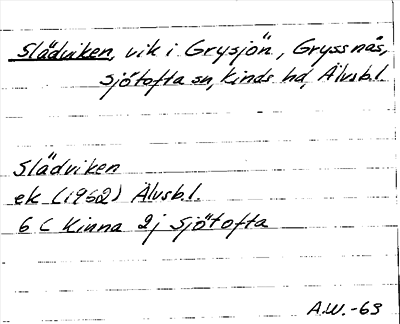 Slädviken, vik i Grysjön, Gryssnäs,
Sjötofta sn, Kinds hd, Älvsb.l.
Slädviken
ek (1962) Älvsb.l.
6 C Kinna 2j Sjötofta
A.W.-63